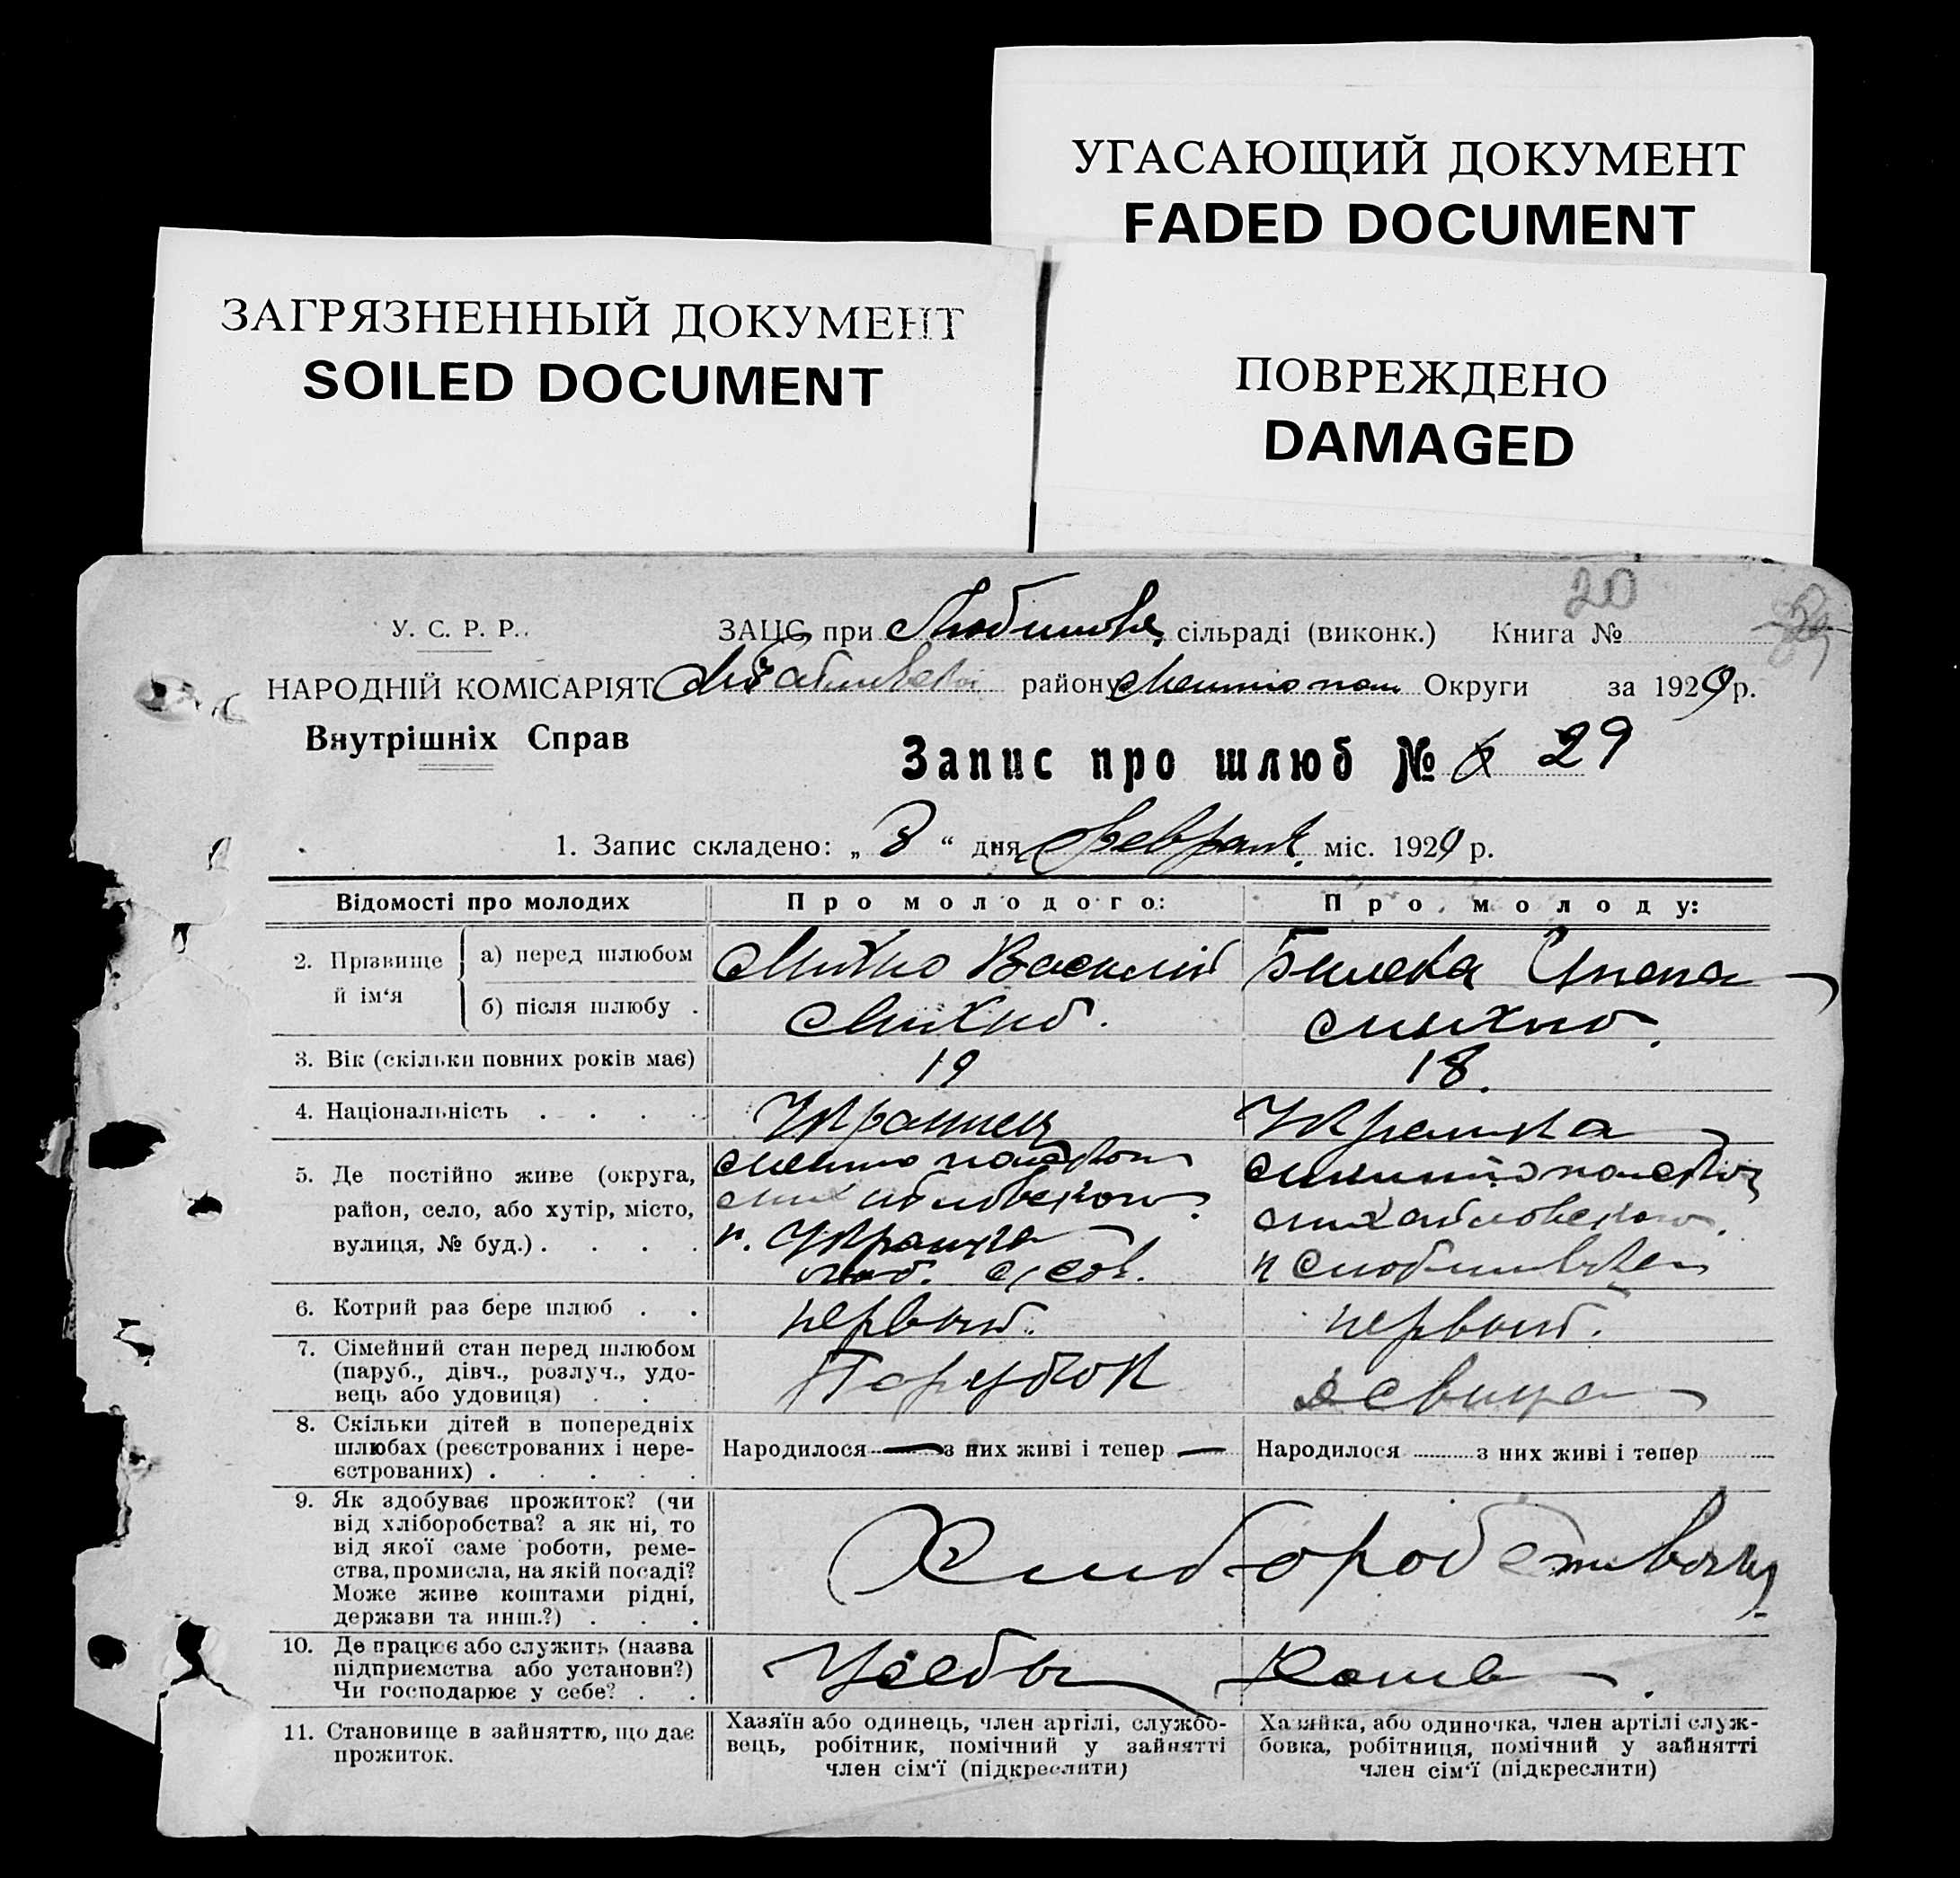 УГАСАЮЩИЙ ДОКУМЕНТ
FADED DOCUMENT
ЗАГРЯЗНЕННЫЙ ДОКУМЕНТ
SOILED DOCUMENT
ПОВРЕЖДЕНО
DAMAGED
20
У. С. Р. Р.
ЗАЦС при сільраді (виконк.) Книга №
НАРОДНІЙ КОМІСАРІЯТ району Округи за 1929 р.
Внутрішніх Справ
Запис про шлюб № 29
1. Запис складено: „ 8 “ дня февраля міс. 1929 р.
Відомості про молодих
Про молодого:
Про молоду:
2. Прізвище й ім‘я
а) перед шлюбом
Михно Василий
Билека
б) після шлюбу .
Михно.
Михно.
3. Вік (скільки повних років має)
19
18.
4. Національність . . . .
Украинец
Украинка
5. Де постійно живе (округа,
район, село, або хутір, місто,
вулиця, № буд.) . . . .
Мелитопольской
Михайловского
п. Украинка
Мелитопольской
Михайловского.
п
6. Котрий раз бере шлюб . .
первый.
первый.
7. Сімейний стан перед шлюбом
(паруб., дівч., розлуч., удо-
вець або удовиця) . . .
Парубок
девица
8. Скільки дітей в попередніх
шлюбах (реєстрованих і нере-
єстрованих) . . . . .
Народилося — з них живі і тепер —
Народилося з них живі і тепер
9. Як здобуває прожиток? (чи
від хліборобства? а як ні, то
від якої саме роботи, реме-
ства, промисла, на якій посаді?
Може живе коштами рідні,
держави та инш.?) . . .
10. Де працює або служить (назва
підприємства або установи?)
Чи господарює у себе? . .
11. Становище в зайняттю, що дає
прожиток.
Хазяїн або одинець, член артілі, службо-
вець, робітник, помічний у зайнятті
член сім‘ї (підкреслити)
Хазяйка, або одиночка, член артілі служ-
бовка, робітниця, помічний у зайнятті
член сім‘ї (підкреслити)